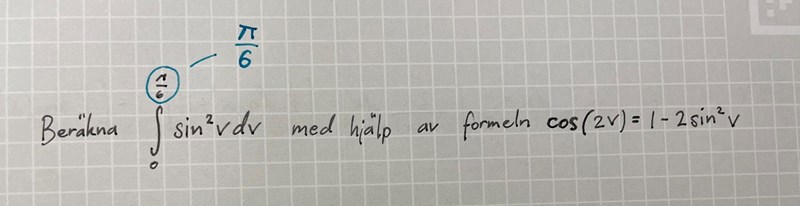 π/6
Beräkna ∫₀^(π/6) sin²v dv med hjälp av formeln cos(2v) = 1 - 2 sin²v